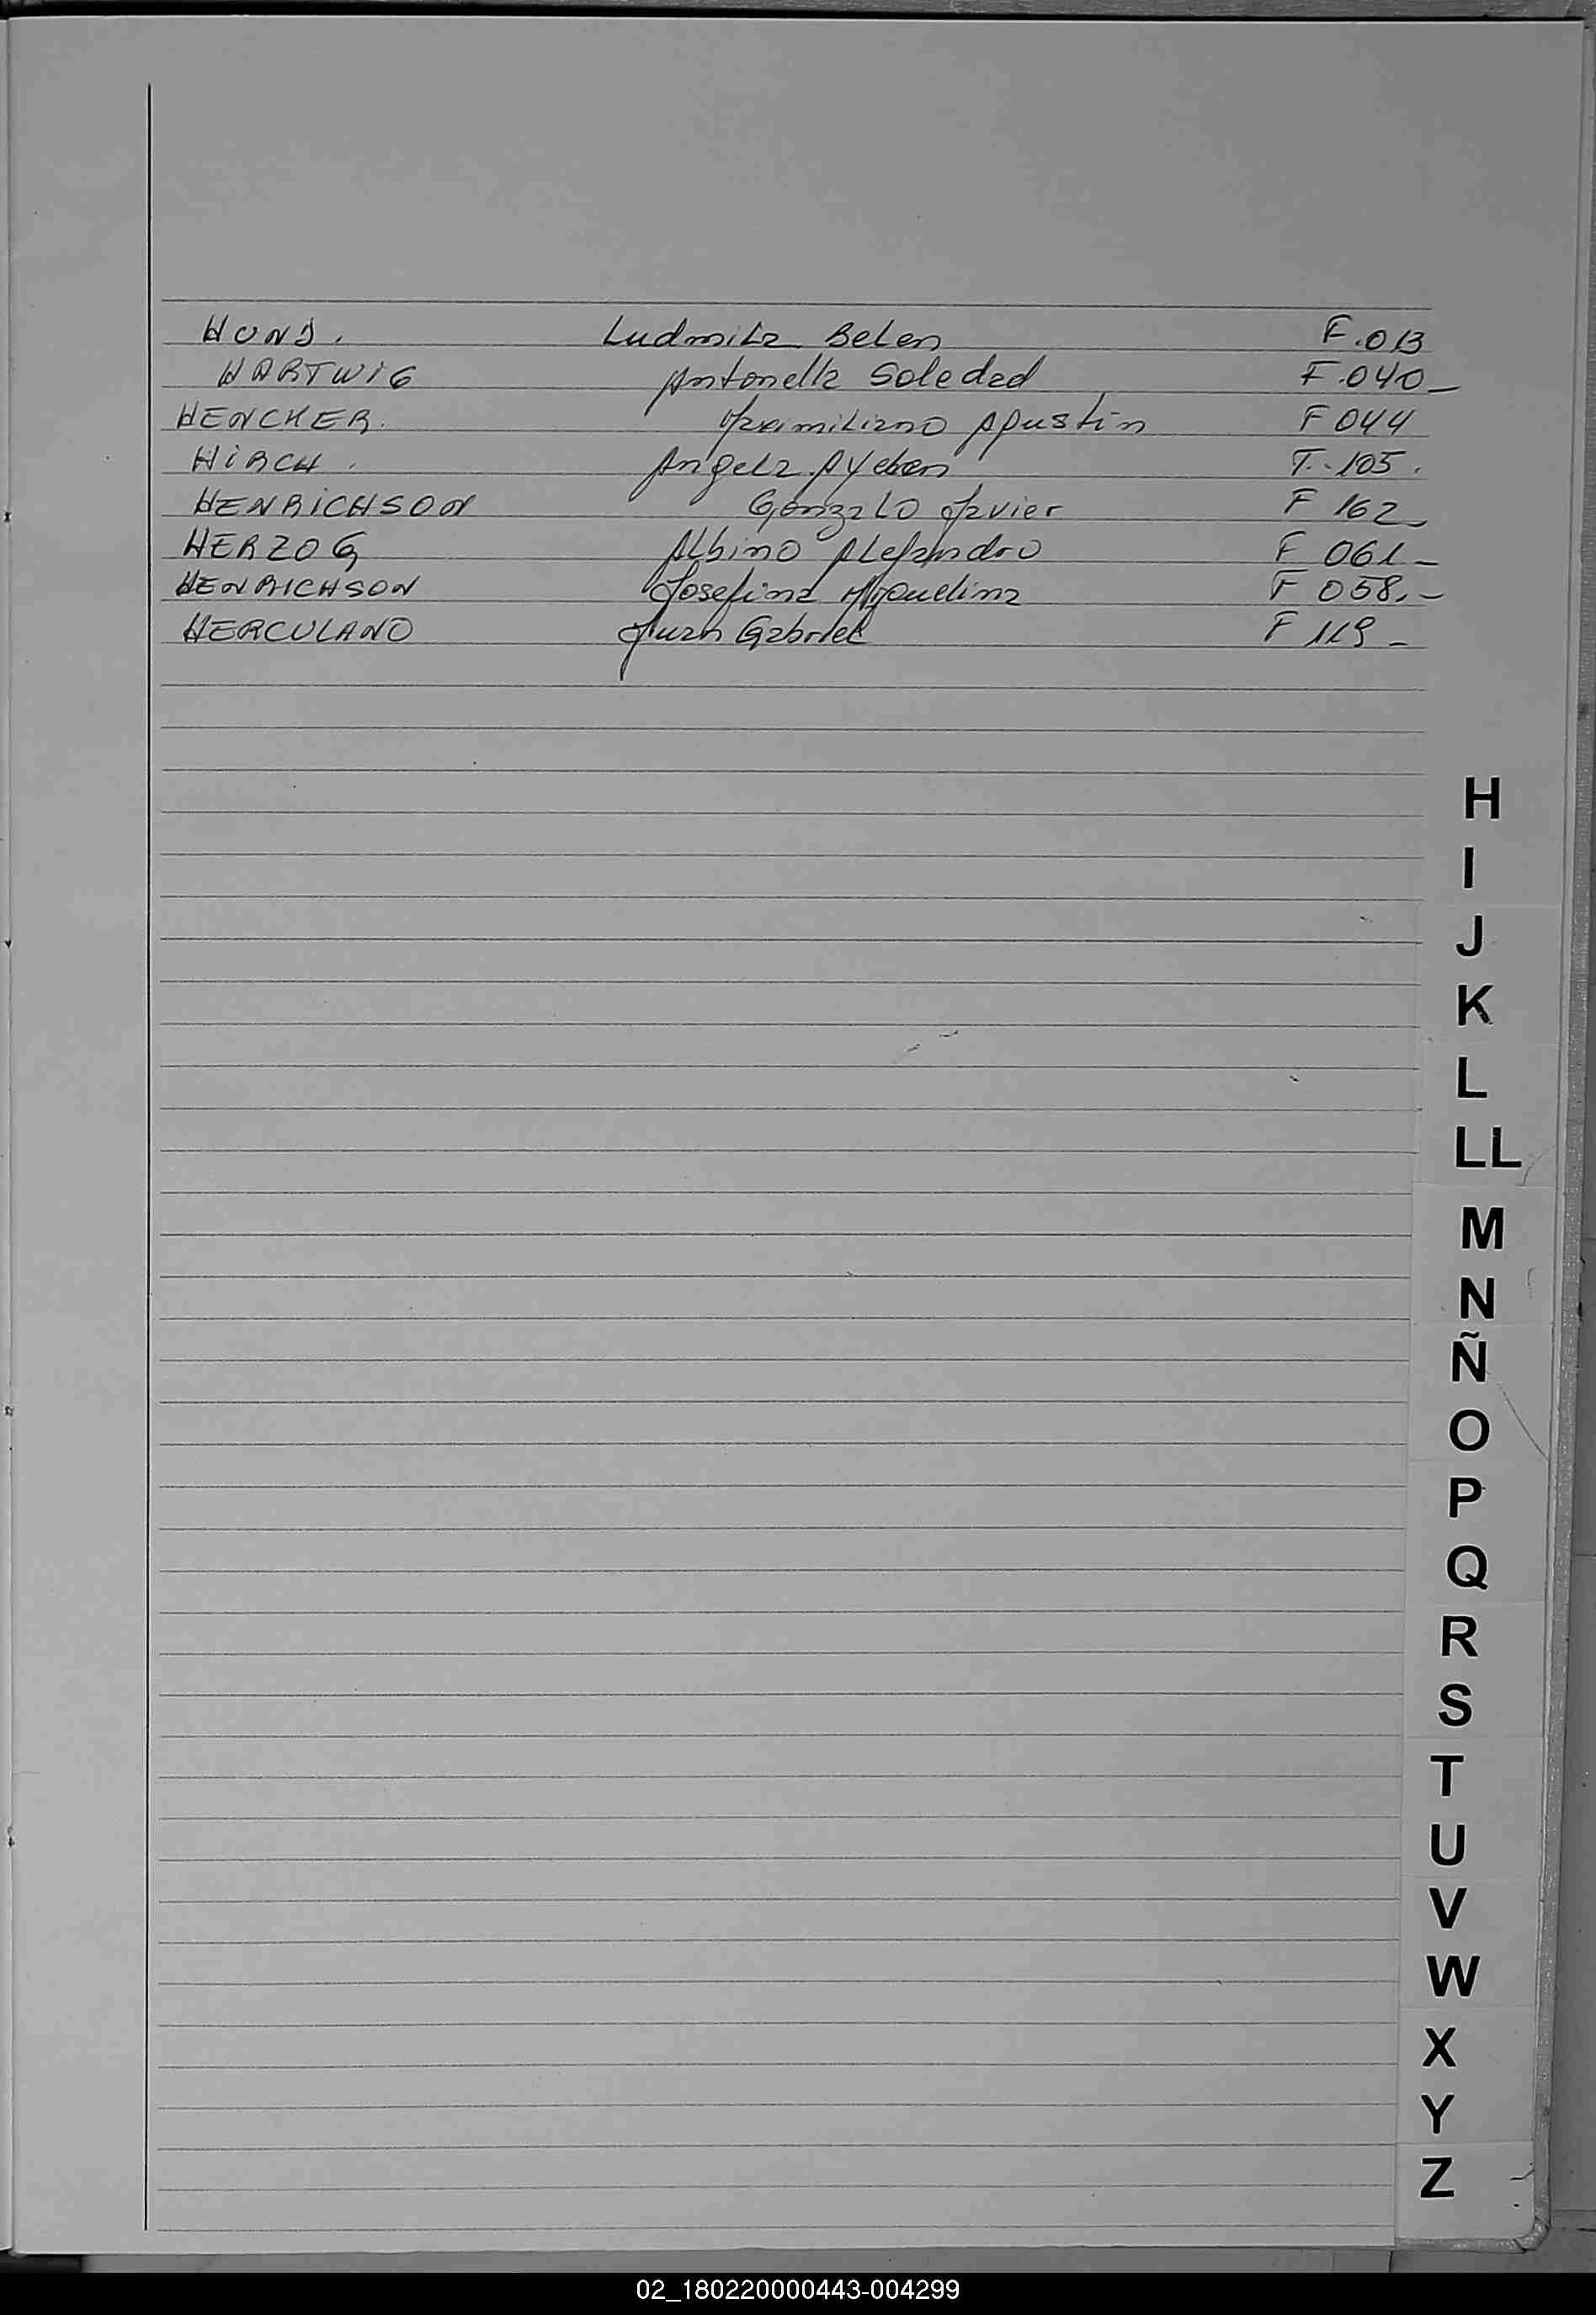 HUND. Ludmila Belen F.013
HARTWIG Antonella Soledad F.040-
HENCHER. Maximiliano Agustin F 044
HIRCH. Angela Ayelen T.-105.
HENRICHSON Gonzalo Javier F 162-
HERZOG Albino Alejandro F 061-
HENRICHSON Josefina Miquelina F 058.-
HERCULANO Juan Gabriel F 119-
H
I
J
K
L
LL
M
N
Ñ
O
P
Q
R
S
T
U
V
W
X
Y
Z
02_180220000443-004299